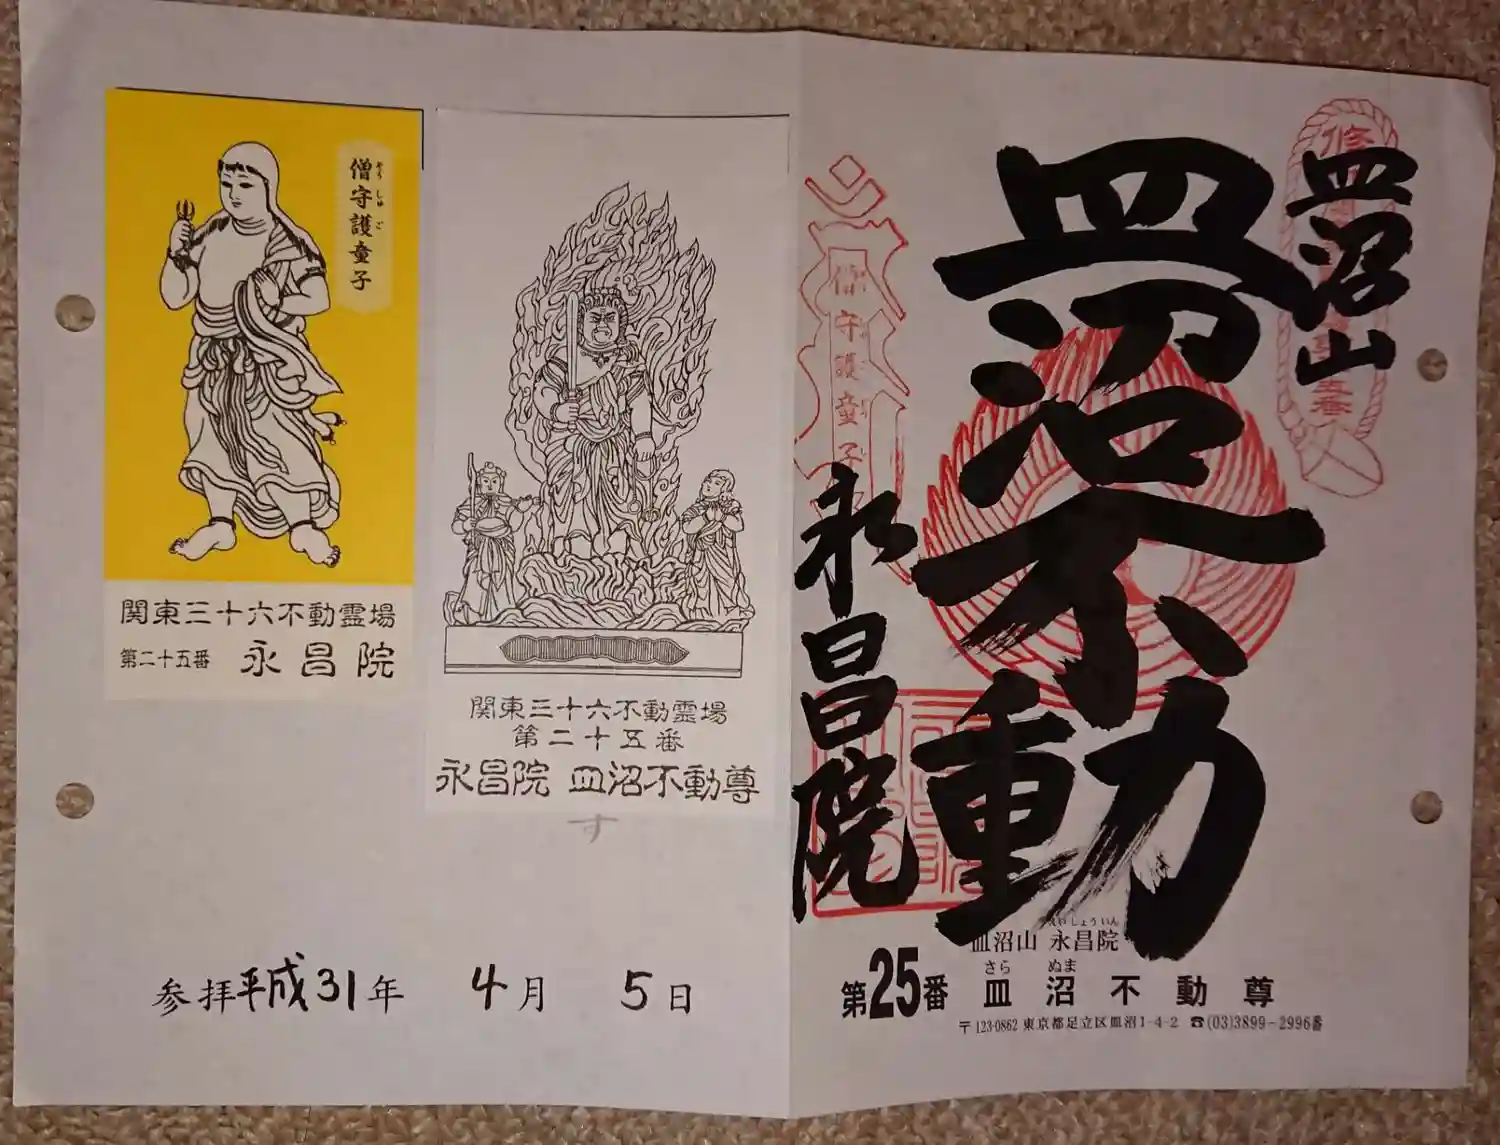 皿沼山
皿沼不動
永昌院
儈守護童子
皿沼山 永昌院
さら ぬま
第25番 皿沼不動尊
〒123-0862 東京都足立区皿沼1-4-2 ☎(03)3899-2996番
僧守護童子
関東三十六不動霊場
第二十五番 永昌院
関東三十六不動霊場
第二十五番
永昌院 皿沼不動尊
す
参拝平成31年 4月 5日